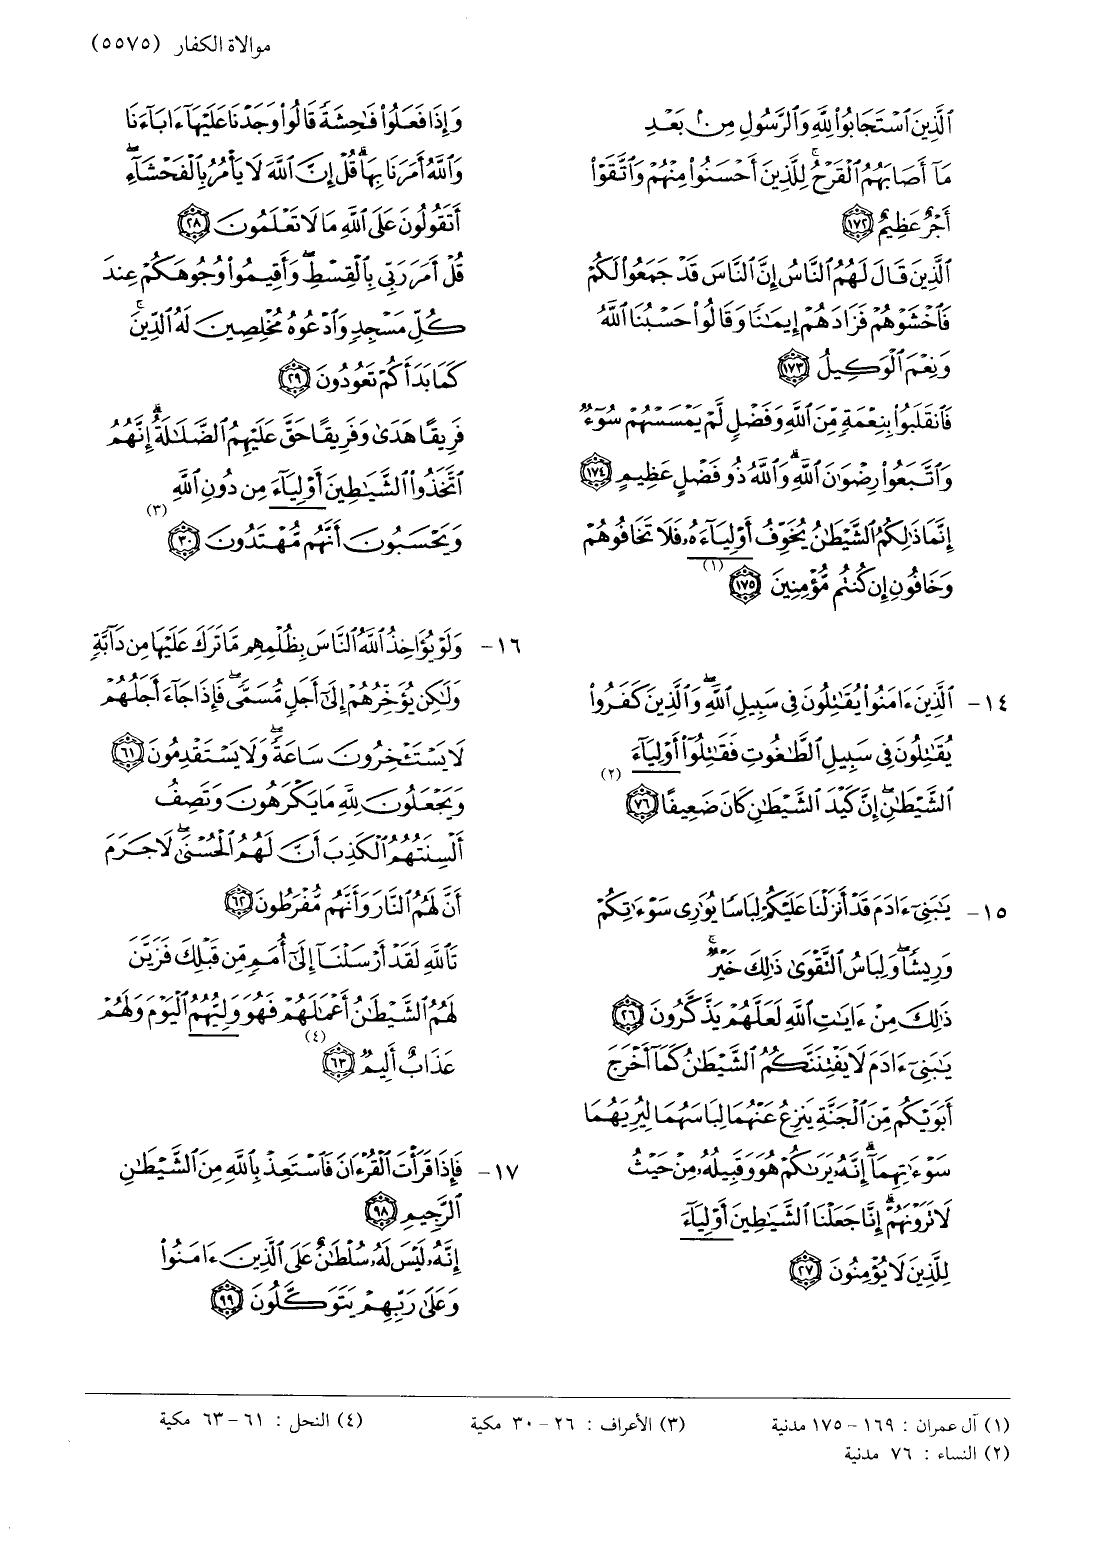 موالاة الكفار (٥٥٧٥)
ٱلَّذِينَ ٱسْتَجَابُوا۟ لِلَّهِ وَٱلرَّسُولِ مِنۢ بَعْدِ
مَآ أَصَابَهُمُ ٱلْقَرْحُ ۚ لِلَّذِينَ أَحْسَنُوا۟ مِنْهُمْ وَٱتَّقَوْا۟
أَجْرٌ عَظِيمٌ ١٧٢
ٱلَّذِينَ قَالَ لَهُمُ ٱلنَّاسُ إِنَّ ٱلنَّاسَ قَدْ جَمَعُوا۟ لَكُمْ
فَٱخْشَوْهُمْ فَزَادَهُمْ إِيمَٰنًا وَقَالُوا۟ حَسْبُنَا ٱللَّهُ
وَنِعْمَ ٱلْوَكِيلُ ١٧٣
فَٱنقَلَبُوا۟ بِنِعْمَةٍ مِّنَ ٱللَّهِ وَفَضْلٍ لَّمْ يَمْسَسْهُمْ سُوٓءٌ
وَٱتَّبَعُوا۟ رِضْوَٰنَ ٱللَّهِ ۗ وَٱللَّهُ ذُو فَضْلٍ عَظِيمٍ ١٧٤
إِنَّمَا ذَٰلِكُمُ ٱلشَّيْطَٰنُ يُخَوِّفُ أَوْلِيَآءَهُۥ فَلَا تَخَافُوهُمْ
وَخَافُونِ إِن كُنتُم مُّؤْمِنِينَ ١٧٥ (١)
١٤- ٱلَّذِينَ ءَامَنُوا۟ يُقَٰتِلُونَ فِى سَبِيلِ ٱللَّهِ ۖ وَٱلَّذِينَ كَفَرُوا۟
يُقَٰتِلُونَ فِى سَبِيلِ ٱلطَّٰغُوتِ فَقَٰتِلُوٓا۟ أَوْلِيَآءَ
ٱلشَّيْطَٰنِ ۖ إِنَّ كَيْدَ ٱلشَّيْطَٰنِ كَانَ ضَعِيفًا ٧٦ (٢)
١٥- يَٰبَنِىٓ ءَادَمَ قَدْ أَنزَلْنَا عَلَيْكُمْ لِبَاسًا يُوَٰرِى سَوْءَٰتِكُمْ
وَرِيشًا ۖ وَلِبَاسُ ٱلتَّقْوَىٰ ذَٰلِكَ خَيْرٌ ۚ
ذَٰلِكَ مِنْ ءَايَٰتِ ٱللَّهِ لَعَلَّهُمْ يَذَّكَّرُونَ ٢٦
يَٰبَنِىٓ ءَادَمَ لَا يَفْتِنَنَّكُمُ ٱلشَّيْطَٰنُ كَمَآ أَخْرَجَ
أَبَوَيْكُم مِّنَ ٱلْجَنَّةِ يَنزِعُ عَنْهُمَا لِبَاسَهُمَا لِيُرِيَهُمَا
سَوْءَٰتِهِمَآ ۗ إِنَّهُۥ يَرَىٰكُمْ هُوَ وَقَبِيلُهُۥ مِنْ حَيْثُ
لَا تَرَوْنَهُمْ ۗ إِنَّا جَعَلْنَا ٱلشَّيَٰطِينَ أَوْلِيَآءَ
لِلَّذِينَ لَا يُؤْمِنُونَ ٢٧
وَإِذَا فَعَلُوا۟ فَٰحِشَةً قَالُوا۟ وَجَدْنَا عَلَيْهَآ ءَابَآءَنَا
وَٱللَّهُ أَمَرَنَا بِهَا ۗ قُلْ إِنَّ ٱللَّهَ لَا يَأْمُرُ بِٱلْفَحْشَآءِ ۖ
أَتَقُولُونَ عَلَى ٱللَّهِ مَا لَا تَعْلَمُونَ ٢٨
قُلْ أَمَرَ رَبِّى بِٱلْقِسْطِ ۖ وَأَقِيمُوا۟ وُجُوهَكُمْ عِندَ
كُلِّ مَسْجِدٍ وَٱدْعُوهُ مُخْلِصِينَ لَهُ ٱلدِّينَ ۚ
كَمَا بَدَأَكُمْ تَعُودُونَ ٢٩
فَرِيقًا هَدَىٰ وَفَرِيقًا حَقَّ عَلَيْهِمُ ٱلضَّلَٰلَةُ ۗ إِنَّهُمُ
ٱتَّخَذُوا۟ ٱلشَّيَٰطِينَ أَوْلِيَآءَ مِن دُونِ ٱللَّهِ
وَيَحْسَبُونَ أَنَّهُم مُّهْتَدُونَ ٣٠ (٣)
١٦- وَلَوْ يُؤَاخِذُ ٱللَّهُ ٱلنَّاسَ بِظُلْمِهِم مَّا تَرَكَ عَلَيْهَا مِن دَآبَّةٍ
وَلَٰكِن يُؤَخِّرُهُمْ إِلَىٰٓ أَجَلٍ مُّسَمًّى ۖ فَإِذَا جَآءَ أَجَلُهُمْ
لَا يَسْتَـْٔخِرُونَ سَاعَةً ۖ وَلَا يَسْتَقْدِمُونَ ٦١
وَيَجْعَلُونَ لِلَّهِ مَا يَكْرَهُونَ وَتَصِفُ
أَلْسِنَتُهُمُ ٱلْكَذِبَ أَنَّ لَهُمُ ٱلْحُسْنَىٰ ۖ لَا جَرَمَ
أَنَّ لَهُمُ ٱلنَّارَ وَأَنَّهُم مُّفْرَطُونَ ٦٢
تَٱللَّهِ لَقَدْ أَرْسَلْنَآ إِلَىٰٓ أُمَمٍ مِّن قَبْلِكَ فَزَيَّنَ
لَهُمُ ٱلشَّيْطَٰنُ أَعْمَٰلَهُمْ فَهُوَ وَلِيُّهُمُ ٱلْيَوْمَ وَلَهُمْ
عَذَابٌ أَلِيمٌ ٦٣ (٤)
١٧- فَإِذَا قَرَأْتَ ٱلْقُرْءَانَ فَٱسْتَعِذْ بِٱللَّهِ مِنَ ٱلشَّيْطَٰنِ
ٱلرَّجِيمِ ٩٨
إِنَّهُۥ لَيْسَ لَهُۥ سُلْطَٰنٌ عَلَى ٱلَّذِينَ ءَامَنُوا۟
وَعَلَىٰ رَبِّهِمْ يَتَوَكَّلُونَ ٩٩
(١) آل عمران : ١٦٩ - ١٧٥ مدنية
(٢) النساء : ٧٦ مدنية
(٣) الأعراف : ٢٦ - ٣٠ مكية
(٤) النحل : ٦١ - ٦٣ مكية